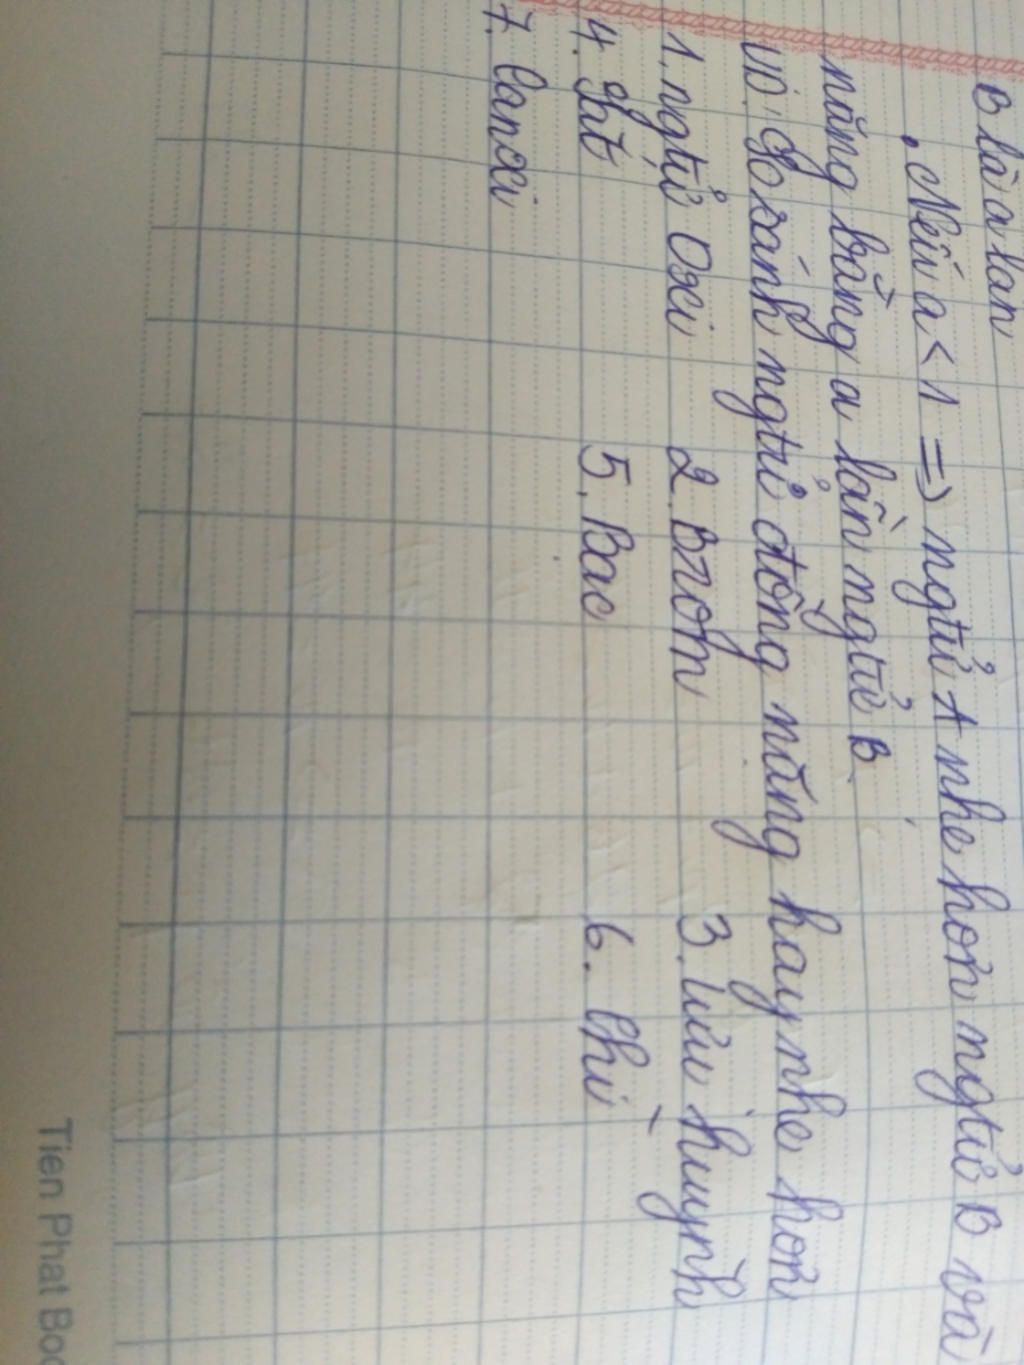 B là a lần
. Nếu a < 1 => ngtử A nhẹ hơn ngtử B và
nặng bằng a lần ngtử B
VD: So sánh ngtử đồng nặng hay nhẹ hơn
1. ngtử Oxi 2. Brom 3. lưu huỳnh
4. Sắt 5. Bạc 6. Chì
7. Canxi
Tien Phat Boo